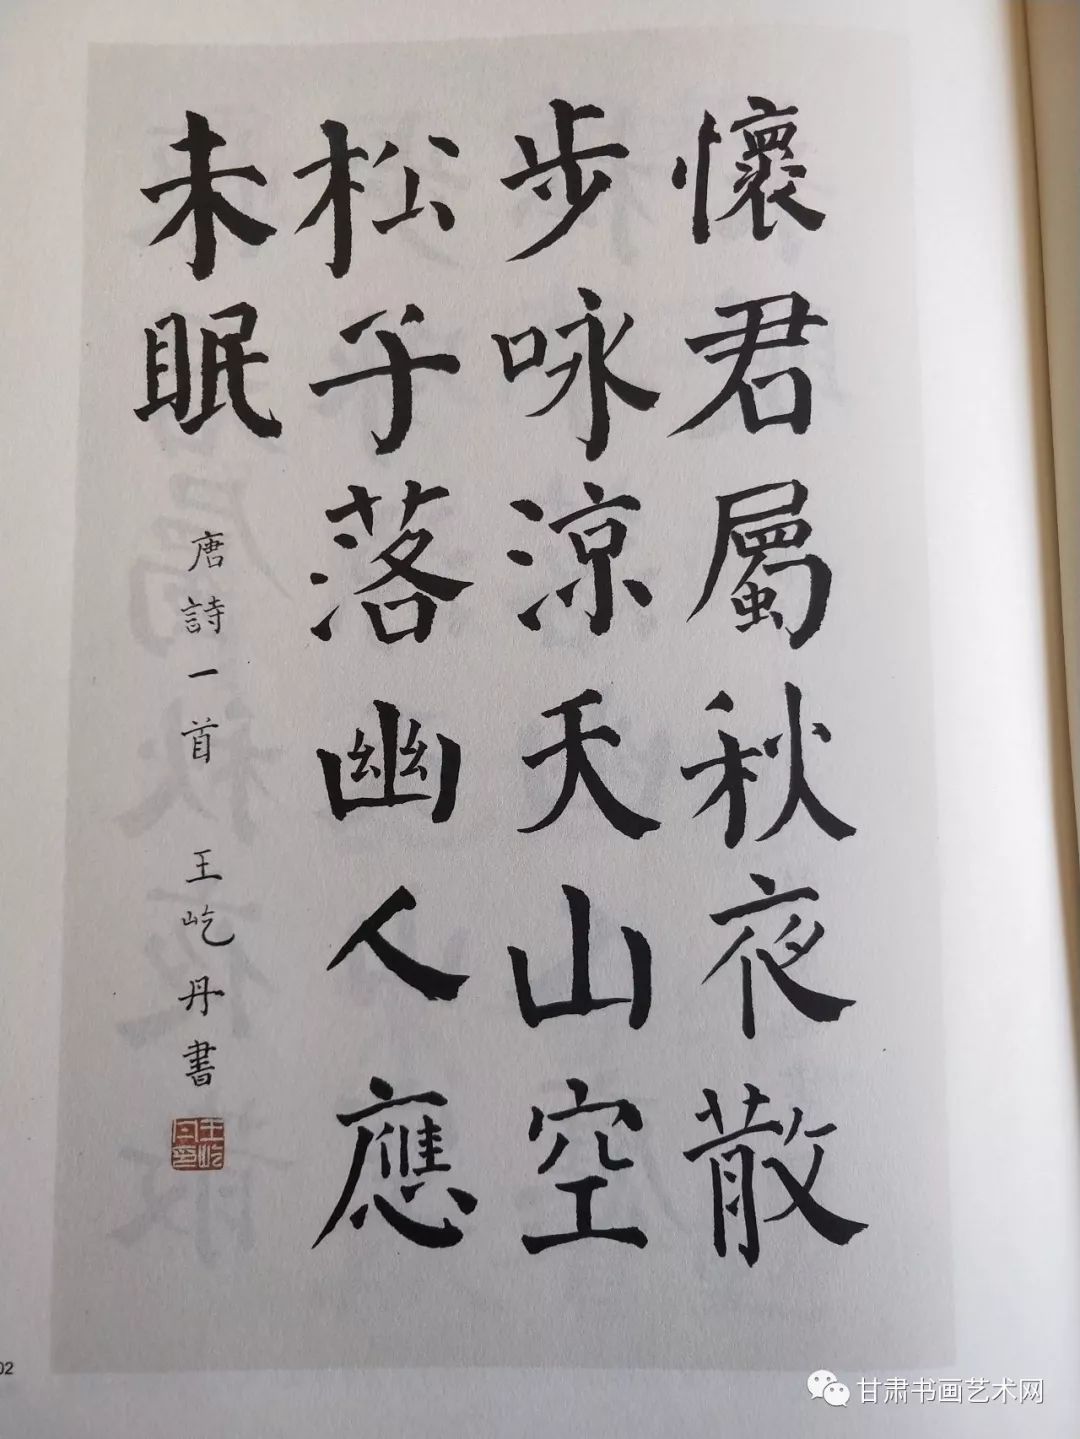 懷君屬秋夜散
步咏涼天山空
松子落幽人應
未眠
唐詩一首 王屹丹書
王屹丹印
02
甘肃书画艺术网